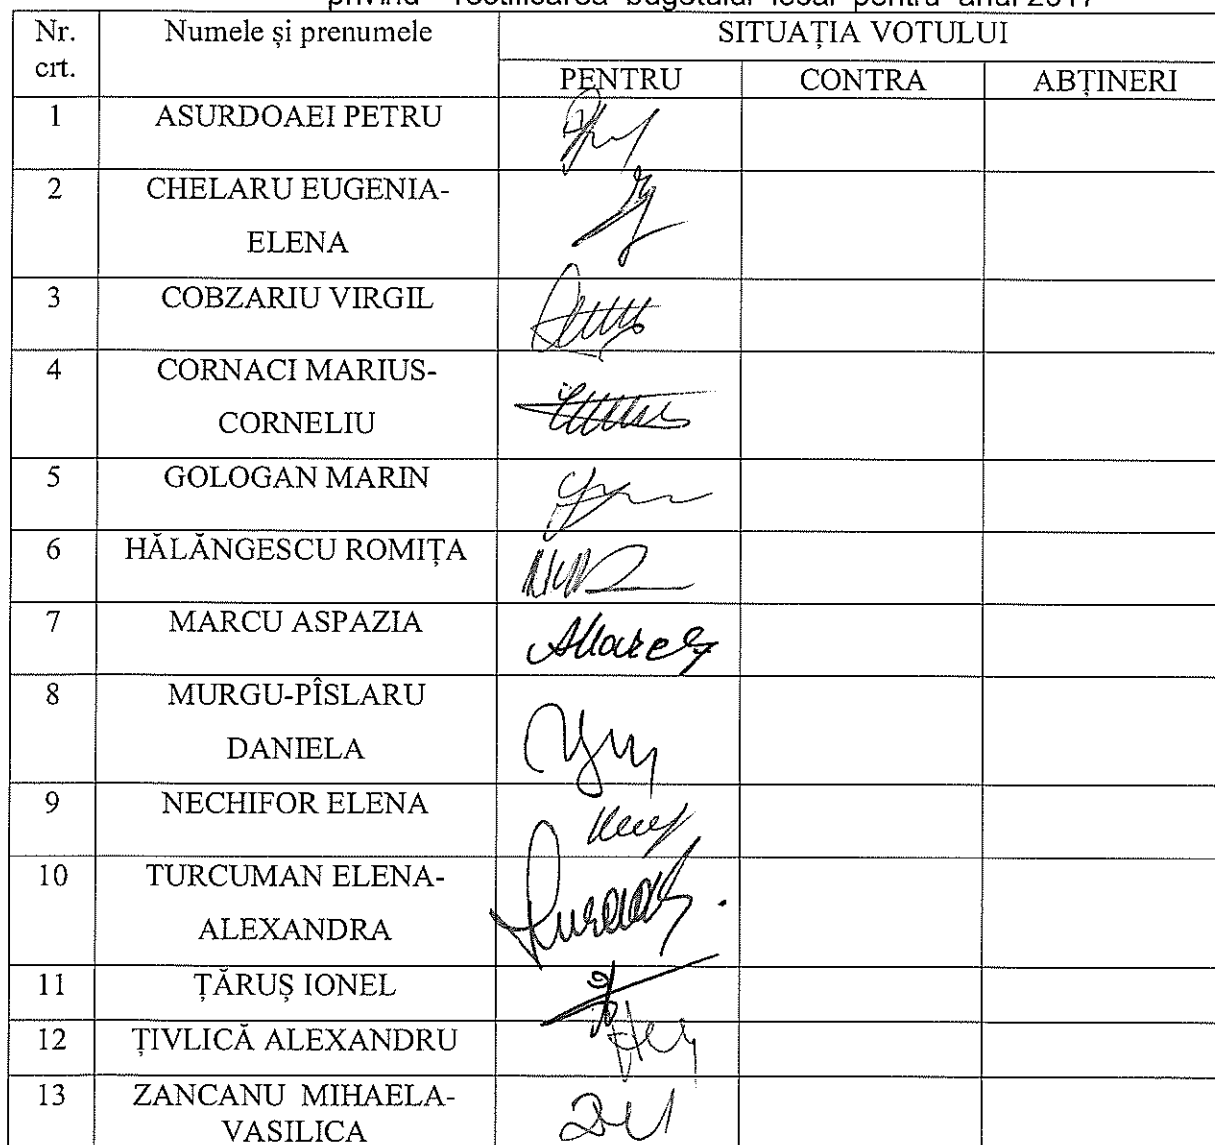 privind rectificarea bugetului local pentru anul 2017
Nr. crt. Numele și prenumele SITUAȚIA VOTULUI
PENTRU CONTRA ABȚINERI
1 ASURDOAEI PETRU
2 CHELARU EUGENIA-
ELENA
3 COBZARIU VIRGIL
4 CORNACI MARIUS-
CORNELIU
5 GOLOGAN MARIN
6 HĂLĂNGESCU ROMIȚA
7 MARCU ASPAZIA
8 MURGU-PÎSLARU
DANIELA
9 NECHIFOR ELENA
10 TURCUMAN ELENA-
ALEXANDRA
11 ȚĂRUȘ IONEL
12 ȚIVLICĂ ALEXANDRU
13 ZANCANU MIHAELA-
VASILICA